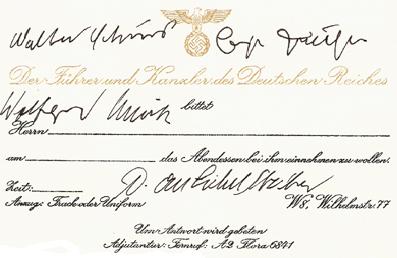 Walter
Der Führer und Kanzler des Deutschen Reiches
Wolfgang bittet
Herrn
am das Abendessen bei ihm einnehmen zu wollen.
Zeit:
Anzug: Frack oder Uniform W8, Wilhelmstr. 77
Um Antwort wird gebeten
Adjutantur: Fernruf: A2 Flora 6841